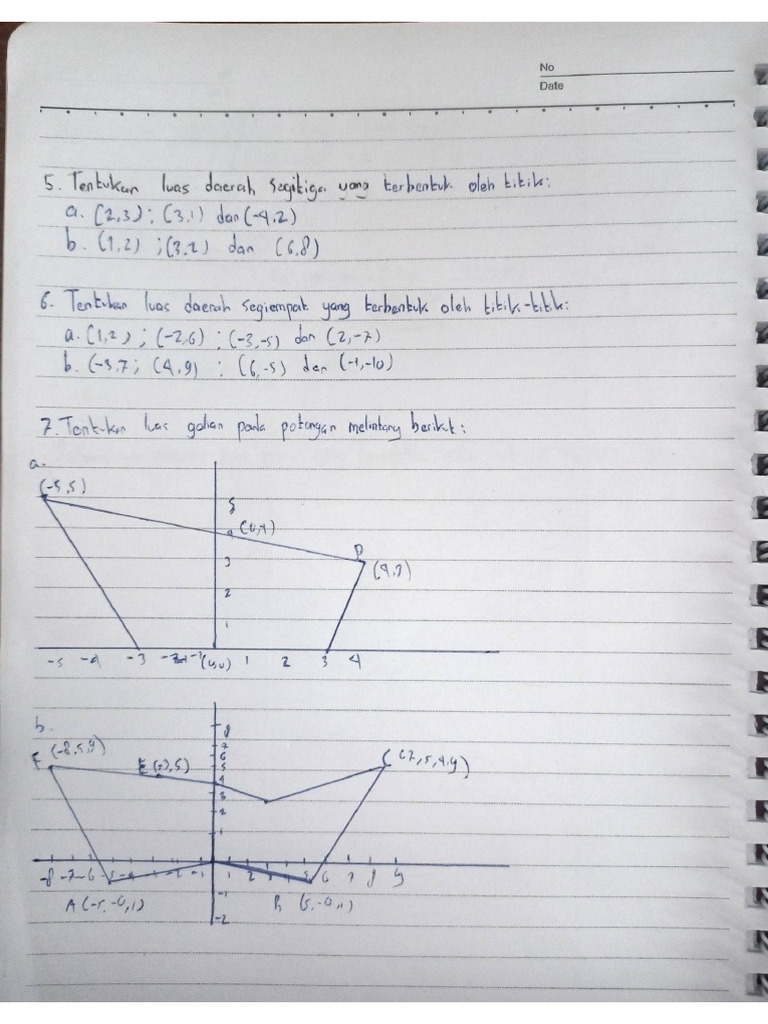 No
Date
5. Tentukan luas daerah segitiga yang terbentuk oleh titik:
a. (2,3) ; (3,1) dan (-4,2)
b. (1,2) ; (3,2) dan (6,8)
6. Tentukan luas daerah segiempat yang terbentuk oleh titik-titik:
a. (1,2) ; (-2,6) ; (-3,-5) dan (2,-7)
b. (-3,7; (4,9) ; (6,-5) dan (-1,-10)
7. Tentukan luas galian pada potongan melintang berikut:
a.
(-5,5)
5
(0,4)
3
D
(4,3)
2
1
-5 -4 -3 -2 -1 (0,0) 1 2 3 4
b.
8
7
6
5
4
3
2
1
F (-8,5,9)
E (-3,5)
C (7,5,4,9)
-8 -7 -6 -5 -4 -3 -2 -1 1 2 3 4 5 6 7 8 9
-1
A (-5,-0,1)
B (5,-0,1)
-2